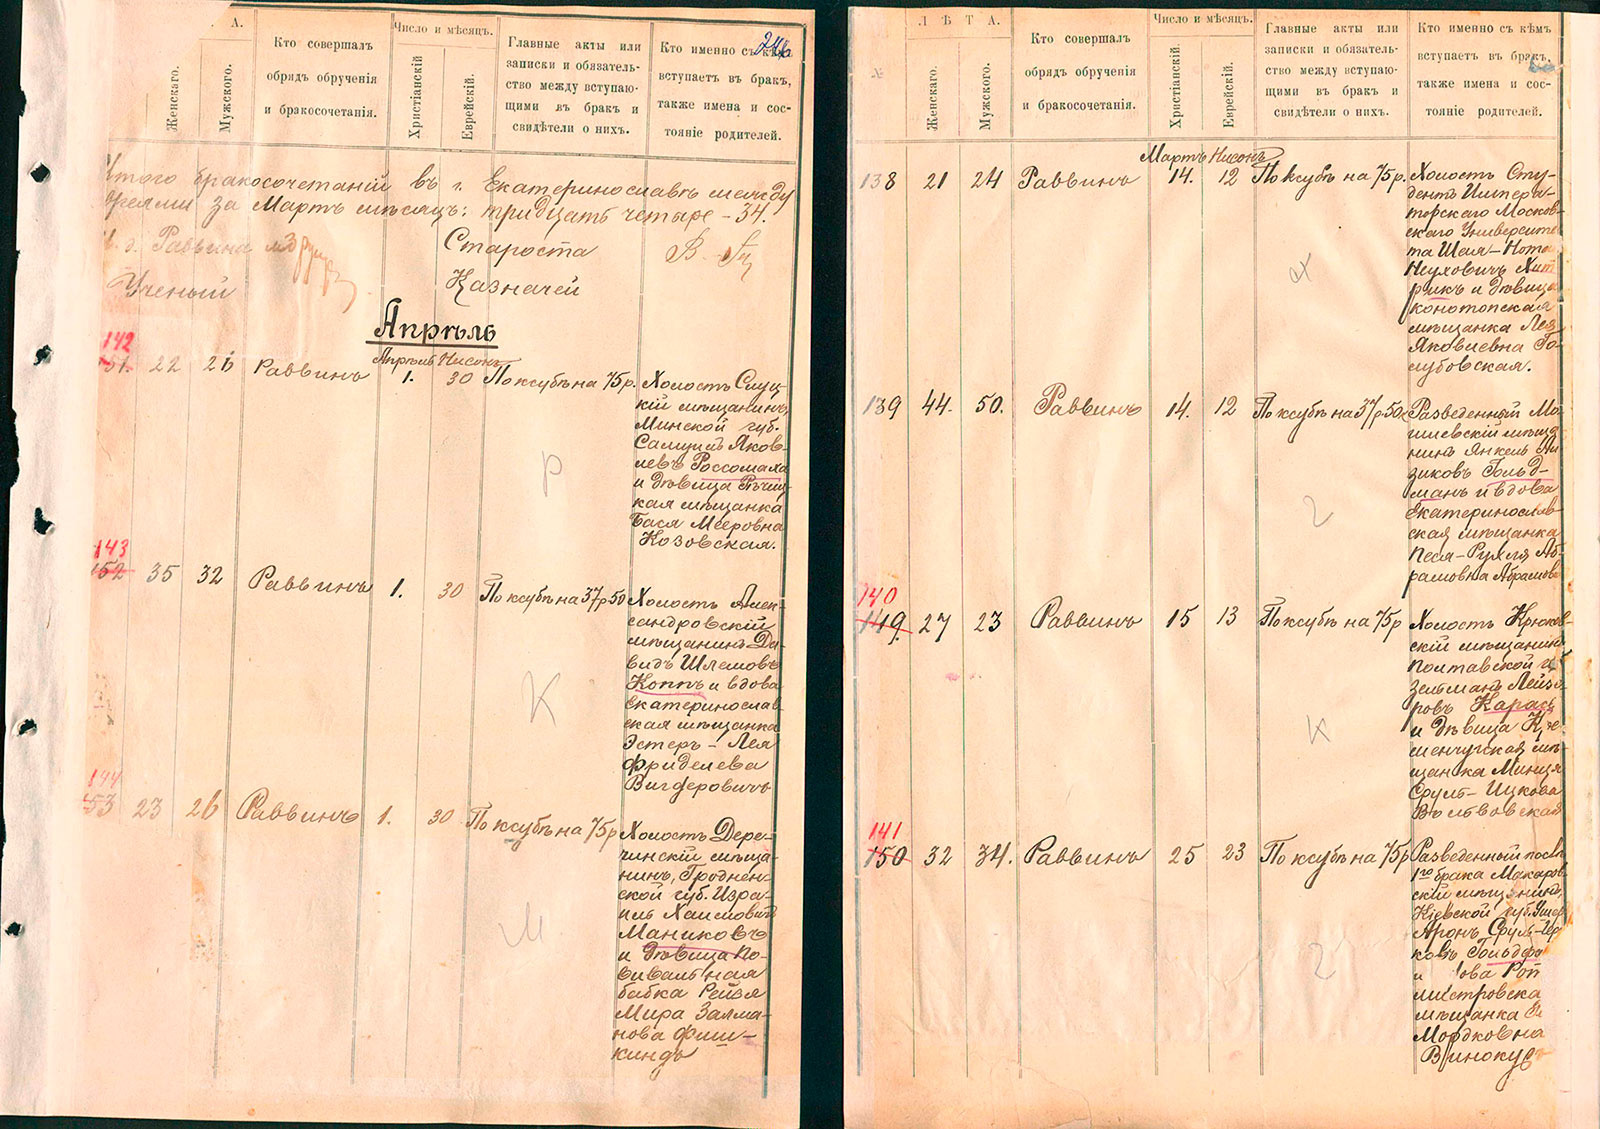 А.
Женскаго.
Мужского.
Кто совершалъ
обрядъ обрученія
и бракосочетанія.
Число и мѣсяцъ.
Христіанскій
Еврейскій.
Главные акты или
записки и обязатель-
ство между вступаю-
щими въ бракъ и
свидѣтели о нихъ.
Кто именно съ кѣмъ
вступаетъ въ бракъ,
также имена и сос-
тояніе родителей.
Итого бракосочетаній въ г. Екатеринославѣ между
евреями за Мартъ мѣсяцъ: тридцать четыре - 34.
Раввина
Староста
Ученый
Казначей
Апрѣль
Апрѣль Нисонъ
142
151. 22 26 Раввинъ 1. 30 По ксубѣ на 75 р.
Холостъ Слуц-
кій мѣщанинъ,
Минской губ.
Самуилъ Яков-
левъ Россомаха
и дѣвица Рѣчиц-
кая мѣщанка
Бася Мееровна
Козовская.
Р
143
152 35 32 Раввинъ 1. 30 По ксубѣ на 37 р 50
Холостъ Алек-
сандровскій
мѣщанинъ Да-
видъ Шлемовъ
Коппъ и вдова
Екатеринослав-
ская мѣщанка
Эстеръ - Лея
Фриделева
Вигдеровичъ
К
144
153 23 26 Раввинъ 1. 30 По ксубѣ на 75 р
Холостъ Дере-
чинскій мѣща-
нинъ, Гроднен-
ской губ. Изра-
иль Хаимовичъ
Маниковъ
и дѣвица По-
вивальная
бабка Рейзя
Мира Залма-
нова Фиш-
киндъ
М
ЛѢТА.
Женскаго.
Мужского.
Кто совершалъ
обрядъ обрученія
и бракосочетанія.
Число и мѣсяцъ.
Христіанскій
Еврейскій.
Главные акты или
записки и обязатель-
ство между вступаю-
щими въ бракъ и
свидѣтели о нихъ.
Кто именно съ кѣмъ
вступаетъ въ бракъ,
также имена и сос-
тояніе родителей.
Мартъ Нисонъ
138 21 24 Раввинъ 14. 12 По ксубѣ на 75 р.
Холостъ Сту-
дентъ Импера-
торскаго Москов-
скаго Университе-
та Шая-Нота
Неуховичъ Хит-
рикъ и дѣвица
конотопская
мѣщанка Лея
Яковлевна Го-
лубовская.
х
139 44. 50. Раввинъ 14. 12 По ксубѣ на 37 р 50 к
Разведенный Мо-
гилевскій мѣща-
нинъ Янкель Ай-
зиковъ Гольд-
манъ и вдова
Екатеринослав-
ская мѣщанка
Песя-Рухля Аб-
рамовна Абрамова
г
140
149. 27 23 Раввинъ 15 13 По ксубѣ на 75 р
Холостъ Крюков-
скій мѣщанинъ
Полтавской г
Зельманъ Лейзе-
ровъ Карась
и дѣвица Кре-
менчугская мѣ-
щанка Минця
Сруль-Ицкова
к
141
150 32 34. Раввинъ 25 23 По ксубѣ на 75 р
Разведенный послѣ
1го брака Макаров-
скій мѣщанинъ,
Кіевской губ. Ушер
Аронъ Сруль-Иц-
ковъ Гольдфа
и
мѣщанка
Мордковна
Винокуръ
г